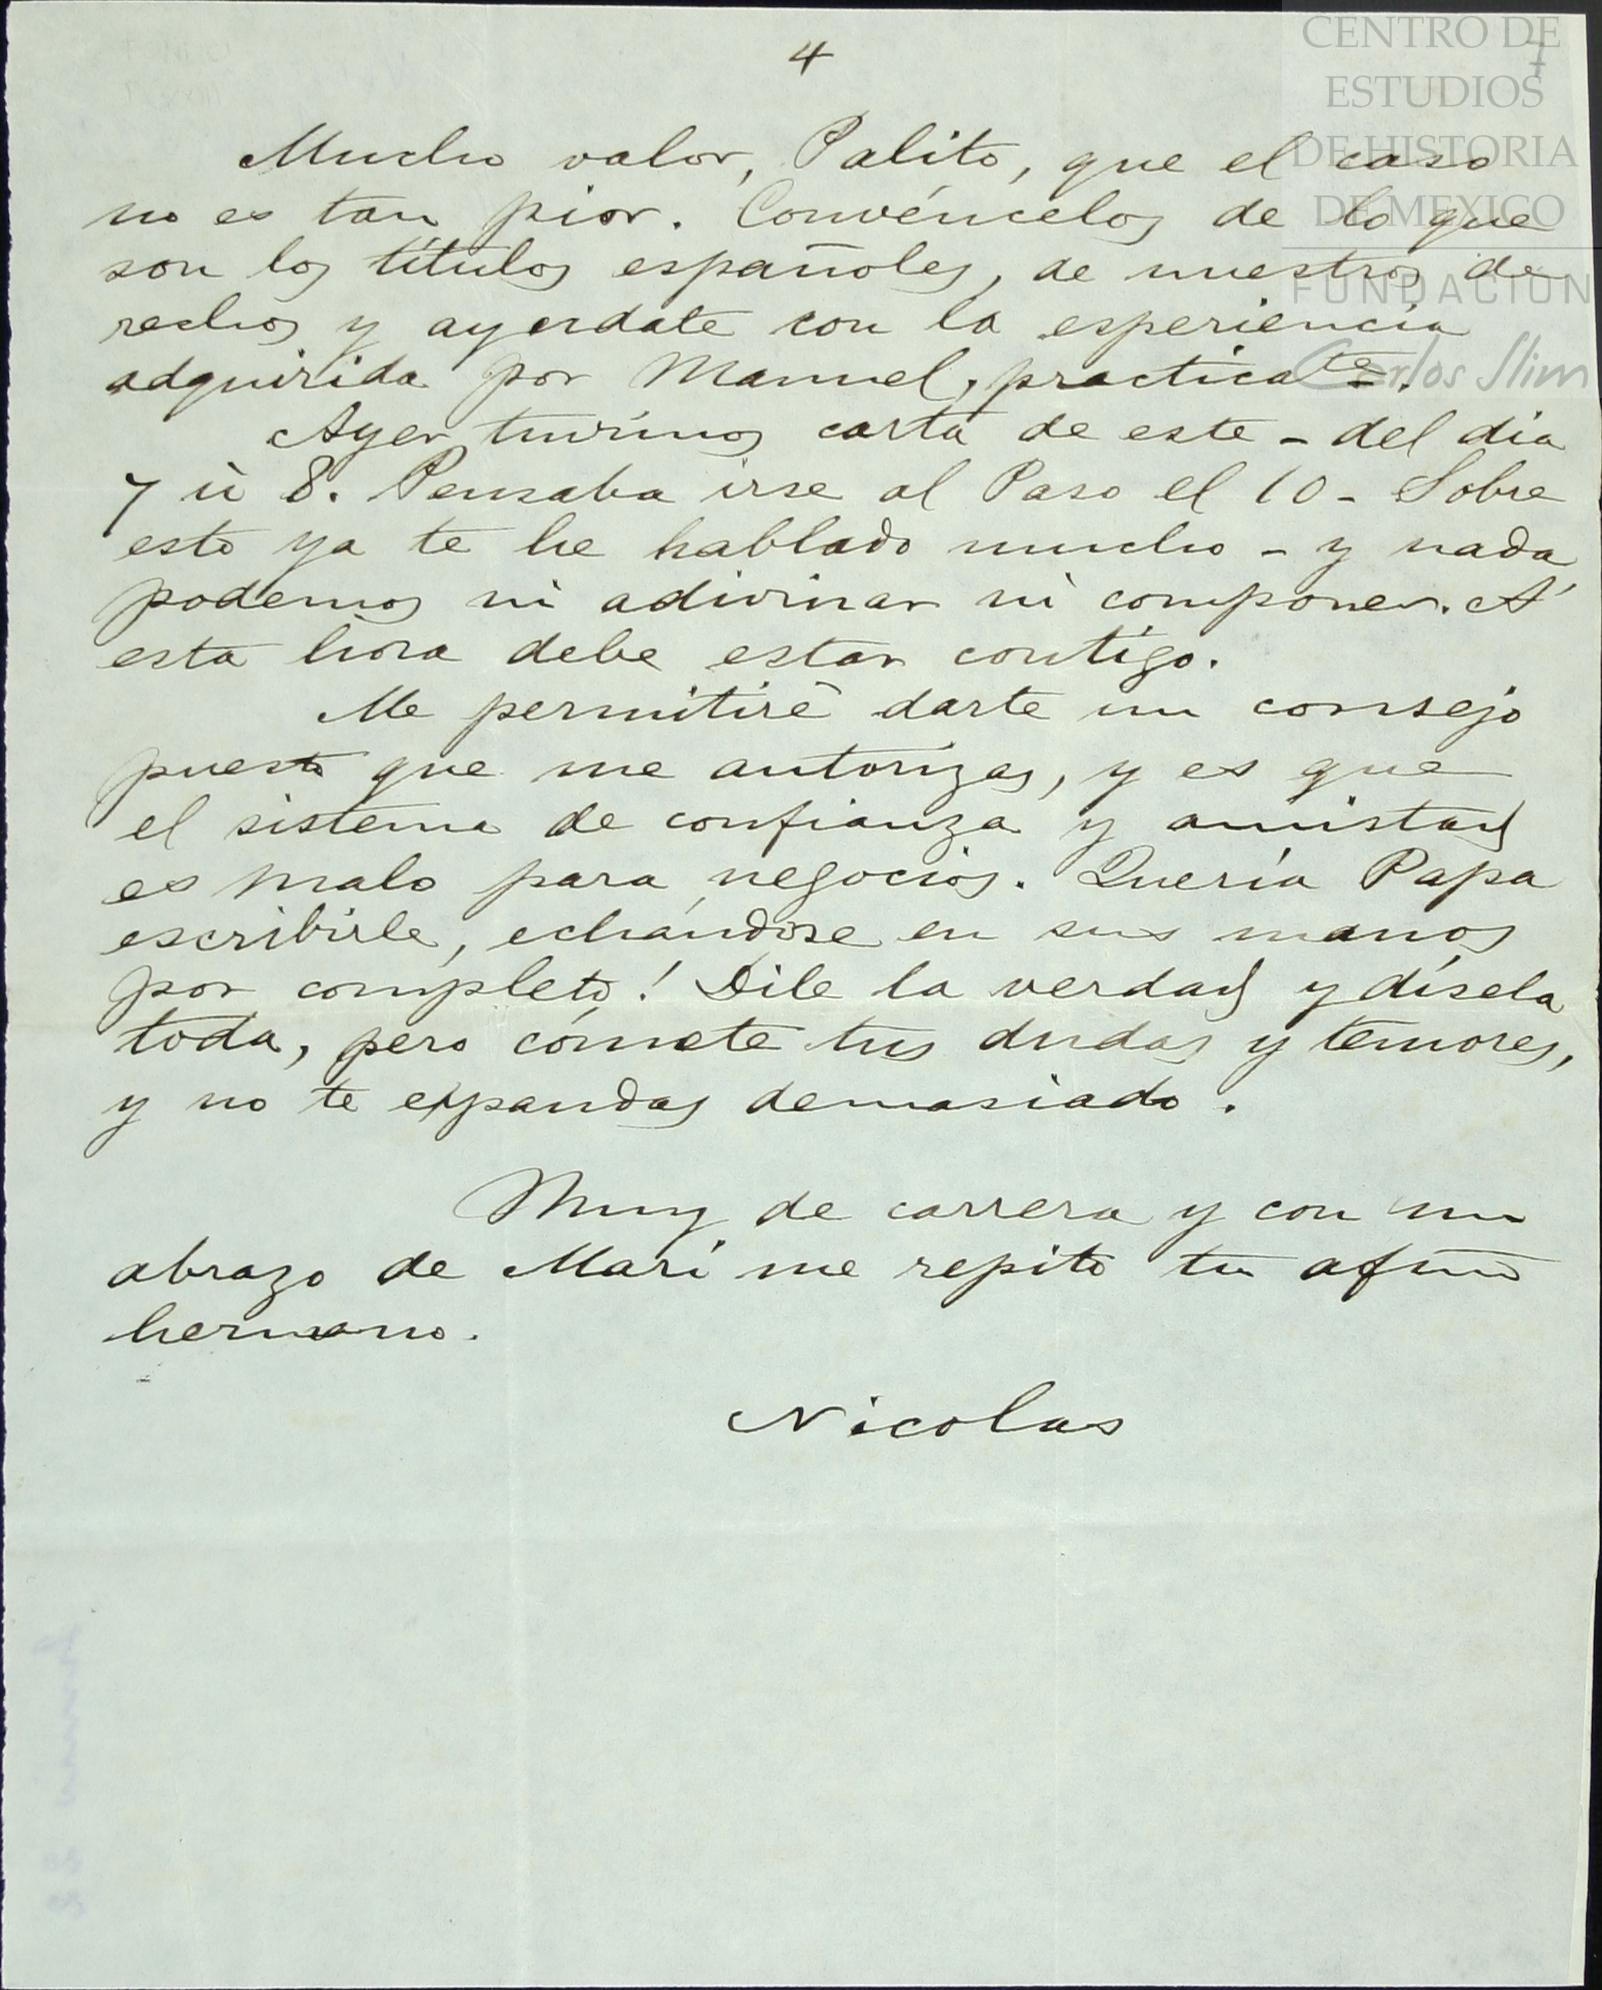 4
7
CENTRO DE
ESTUDIOS
DE HISTORIA
DE MEXICO
FUNDACION
Carlos Slim
Mucho valor, Palito, que el caso
no es tan pior. Convéncelos de lo que
son los títulos españoles, de nuestros de
rechos y ayudate con la esperiencia
adquirida por Manuel, practicate.
Ayer tuvímos carta de este - del dia
7 ù 8. Pensaba irse al Paso el 10 - Sobre
esto ya te he hablado mucho - y nada
podemos ni adivinar ni componer. A'
esta hora debe estar contigo.
Me permitiré darte un consejo
puesto que me autorizas, y es que
el sistema de confianza y amistad
es malo para negocios. Quería Papa
escribirle, echándose en sus manos
por completo! Dile la verdad y dísela
toda, pero cómete tus dudas y temores,
y no te expandas demasiado.
Muy de carrera y con un
abrazo de Mari me repito tu afmo
hermano.
Nicolas